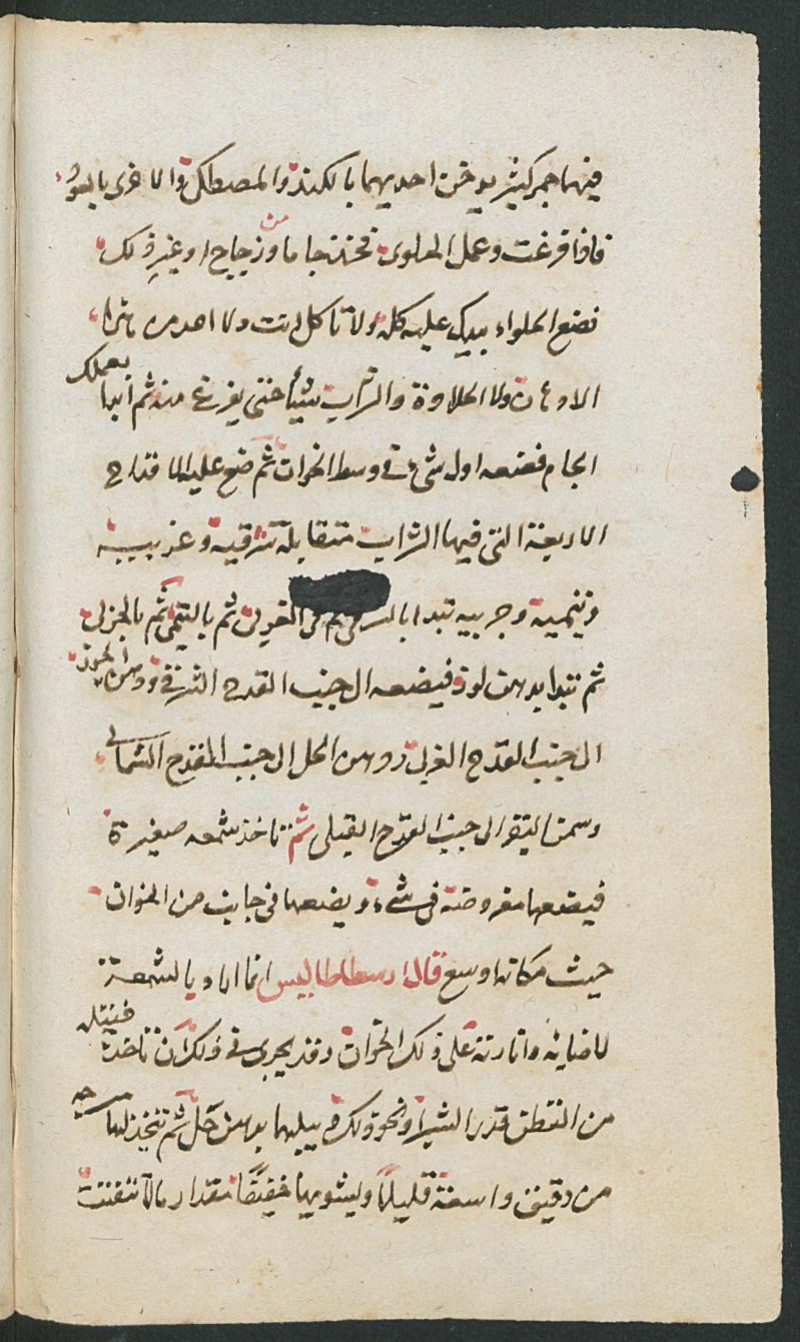 فيها جمر كثير يدخن احديهما بالكندر والمصطكى والاخرى بالعود
فاذا فرغت وعمل الحلوى فخذ جاما من زجاج او غير ذلك
فضع الحلواء بيدك عليه كله ولا تاكل انت ولا احد من هذا
الادهان ولا الحلاوة والشراب شيأ حتى يفرغ منه ثم ابدا بعملك
الجام فضعه اول شئ في وسط الخوان ثم ضع عليه الاقداح
الاربعة التى فيها الشراب متقابلة شرقية وغربية
وتيمية وجربيه تبدا ثم بالغربى ثم بالتيمى ثم بالجربى
ثم تبدا بدهن لوز فيضعه الى جنب القدح الشرقى ودهن الجوز
الى جنب القدح الغربى ودهن الحل الى جنب القدح الشمالى
وسمن البقر الى جنب القدح القبلى ثم تاخذ شمعه صغيرة
فيضعها مفروضة فى شئ ويضعها فى جانب من الخوان
حيث مكانه اوسع قال ارسطاطاليس انما اراد بالشمعة
لاضايه وانارته على ذلك الخوان وقد يجرى فى ذلك ان تاخذ فتيله
من القطن قدر الشبر او نحو ذلك فيبلها بدهن حل ثم تتخذ لها مسرجه
من دقيق واسعة قليلًا ويشويها خفيفًا مقدار مالا تتفتت